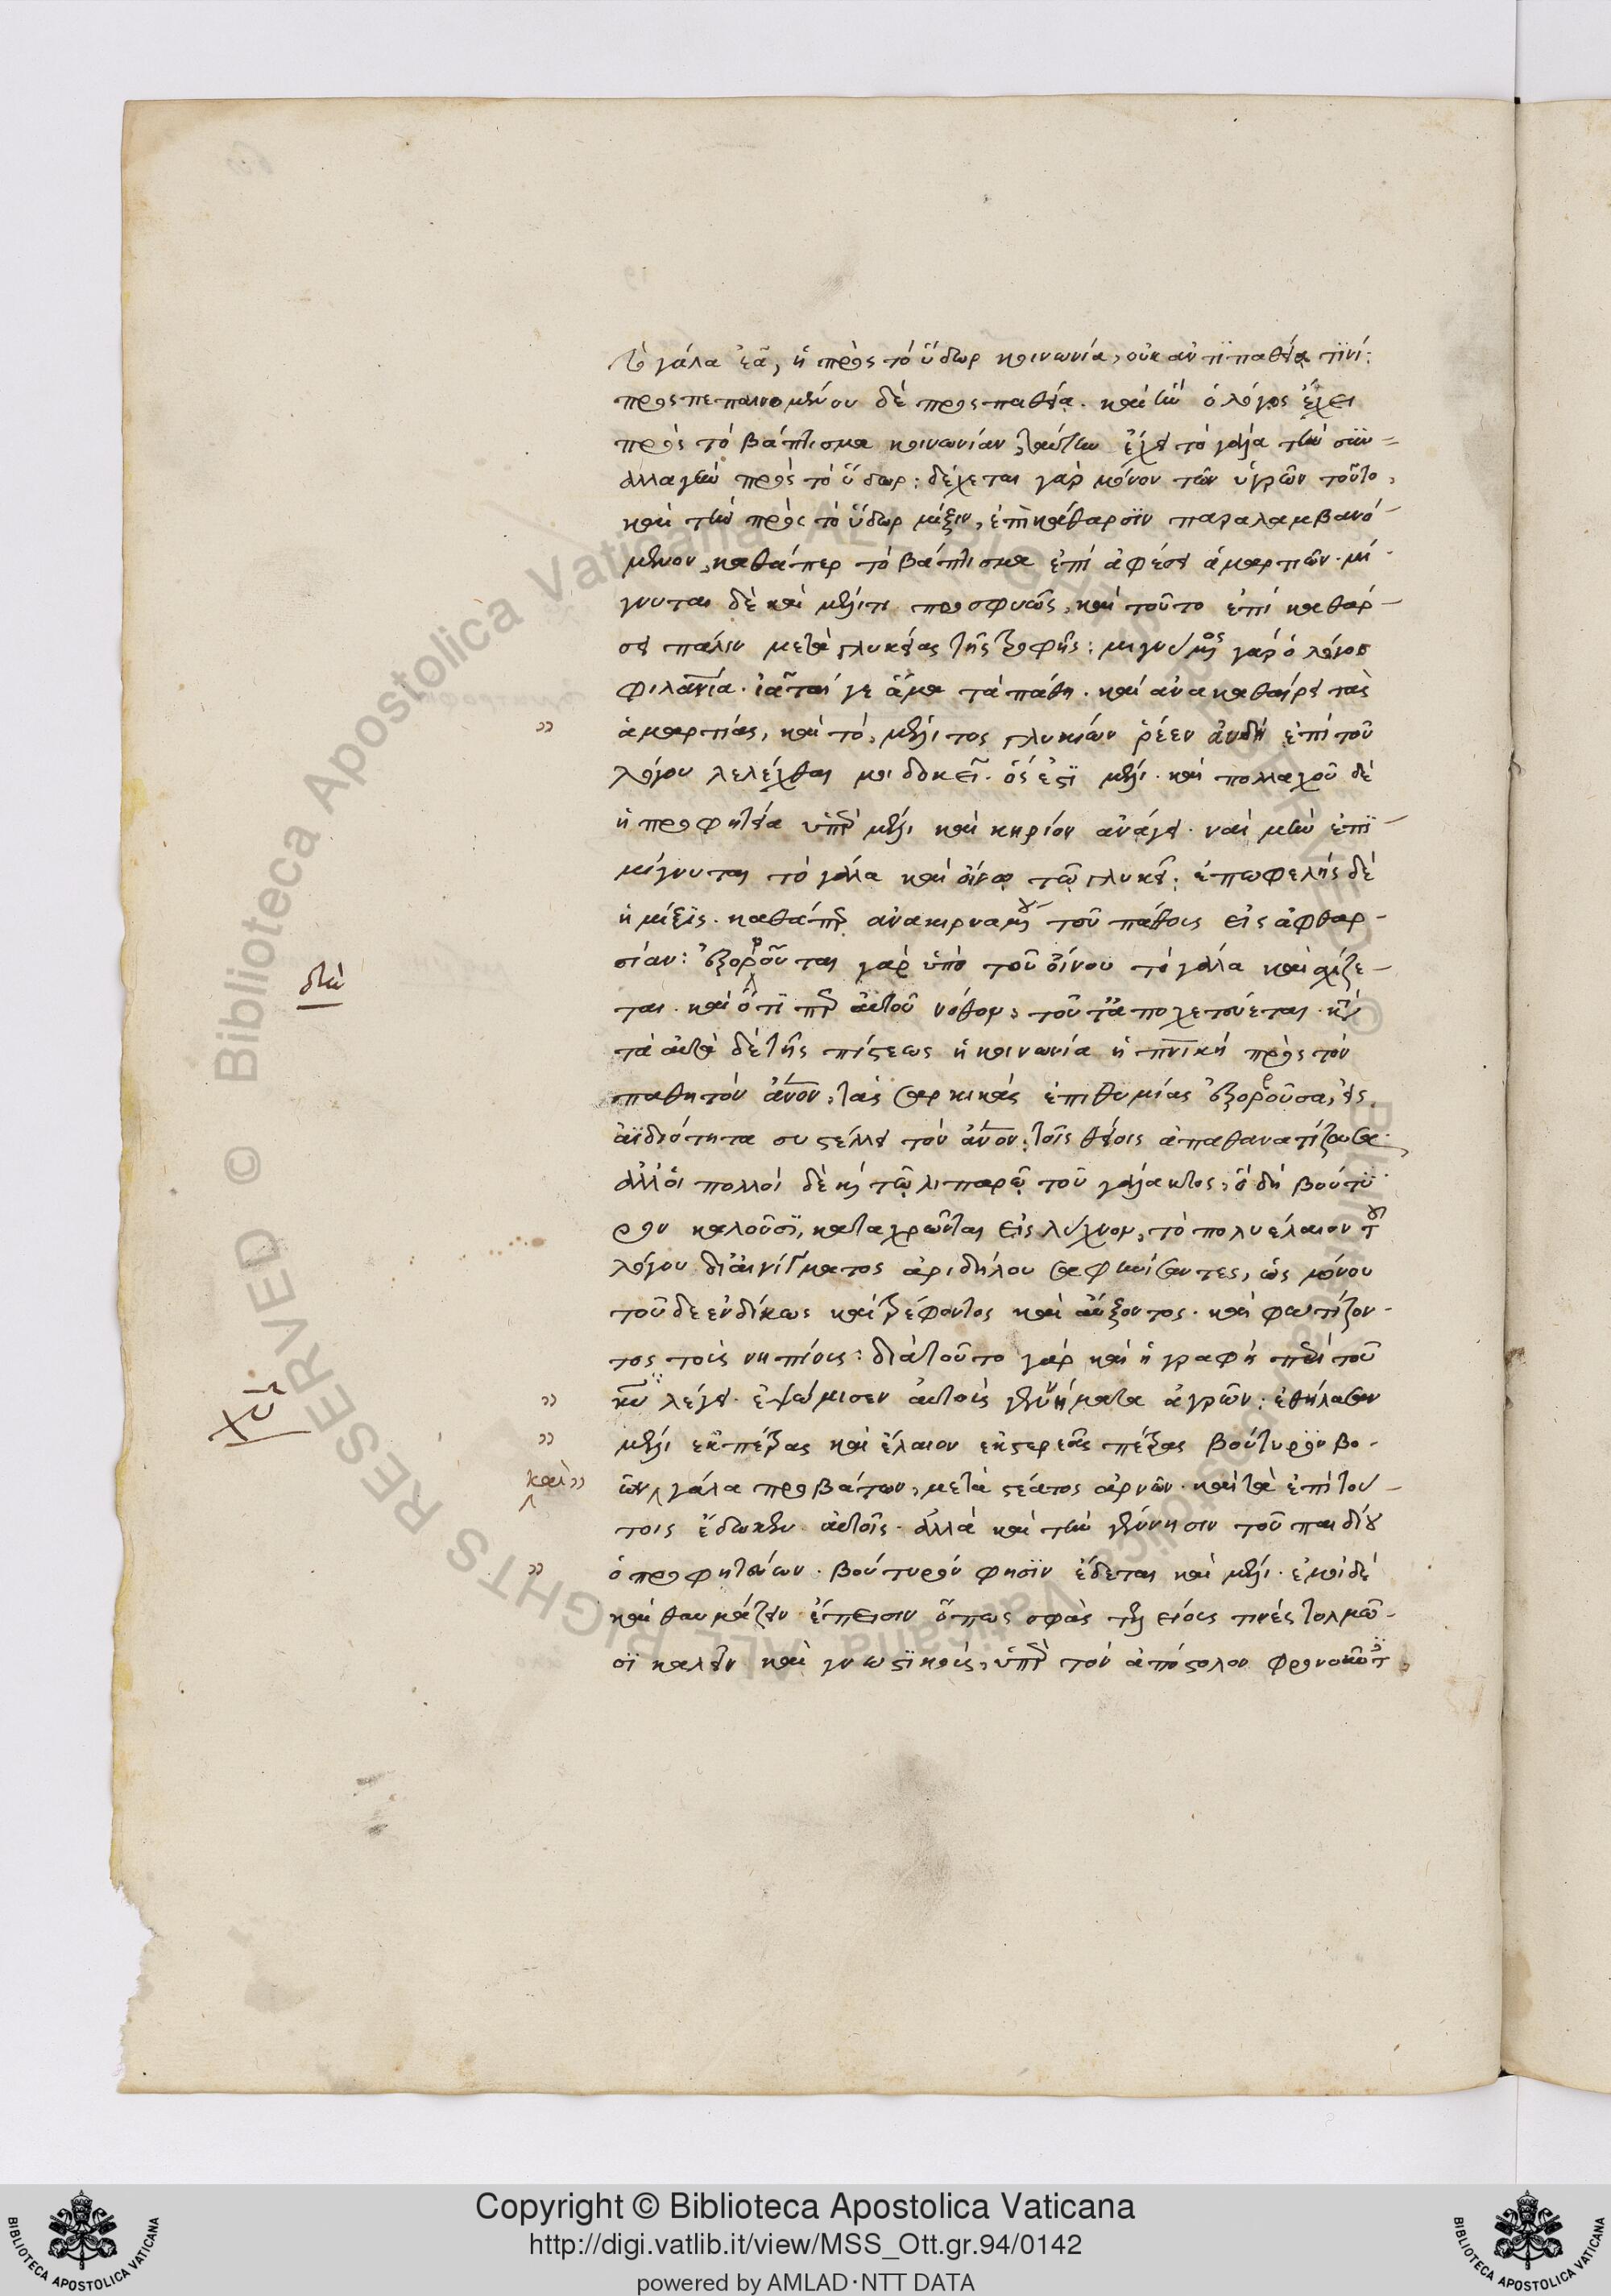 τὸ γάλα ἐᾶ, ἡ πρὸς τὸ ὕδωρ κοινωνία, οὐκ ἀντιπαθεία τινί:
προσπεπαινομένου δὲ προσπαθεία. καὶ ἣν ὁ λόγος ἔχει
πρὸς τὸ βάπτισμα κοινωνίαν, ταύτην ἔχει τὸ γάλα τὴν συν-
αλλαγὴν πρὸς τὸ ὕδωρ: δέχεται γὰρ μόνον τῶν ὑγρῶν τοῦτο,
καὶ τὴν πρὸς τὸ ὕδωρ μίξιν, ἐπὶ κάθαρσιν παραλαμβανό-
μενον, καθάπερ τὸ βάπτισμα ἐπὶ ἀφέσει ἁμαρτιῶν. μί-
γνυται δὲ καὶ μέλιτι προσφυῶς, καὶ τοῦτο ἐπὶ καθάρ-
σει πάλιν μετὰ γλυκείας τῆς τροφῆς: μιγνύμενος γὰρ ὁ λόγος
φιλανία. ἰᾶται γε ἅμα τὰ πάθη. καὶ ἀνακαθαίρει τὰς
» ἁμαρτίας, καὶ τό, μέλιτος γλυκίων ῥέεν αὐδὴ ἐπὶ τοῦ
λόγου λελέχθαι μοι δοκεῖ. ὅς ἐστι μέλι. καὶ πολλαχοῦ δὲ
ἡ προφητεία ὑπὲρ μέλι καὶ κηρίον ἀνάγει. ναὶ μὴν ἐπι-
μίγνυται τὸ γάλα καὶ οἴνῳ τῷ γλυκεῖ: ἐπωφελὴς δὲ
ἡ μίξις. καθάπερ ἀνακιρναμένου τοῦ πάθους εἰς ἀφθαρ-
σίαν: ἐξορροῦται γὰρ ὑπὸ τοῦ οἴνου τὸ γάλα καὶ σχίζε-
διὰ
ται. καὶ ὅτι περ αὐτοῦ νόθον, τοῦτ' ἀποχετεύεται. κατὰ
τὰ αὐτὰ δὲ τῆς πίστεως ἡ κοινωνία ἡ πνικὴ πρὸς τὸν
παθητὸν ἄνον, τὰς σαρκικὰς ἐπιθυμίας ἐξορροῦσα, εἰς
ἀϊδιότητα συστέλλει τὸν ἄνον, τοῖς θείοις ἀπαθανατίζουσα.
ἀλλ' οἱ πολλοὶ δὲ καὶ τῷ λιπαρῷ τοῦ γάλακτος, ὃ δὴ βούτυ
ρον καλοῦσι, καταχρῶνται εἰς λύχνον, τὸ πολυέλαιον τοῦ
λόγου δι' αἰνίγματος ἀριδήλου σαφηνίσαντες, ὡς μόνου
τοῦδε ἐνδίκως καὶ τρέφοντος καὶ αὔξοντος. καὶ φωτίζον-
τος τοὺς νηπίους: διὰ τοῦτο γὰρ καὶ ἡ γραφὴ περὶ τοῦ
χυ
» κυ λέγει. ἐψώμισεν αὐτοὺς γεννήματα ἀγρῶν: ἐθήλασαν
» μέλι ἐκ πέτρας καὶ ἔλαιον ἐκ στερεᾶς πέτρας βούτυρον βο-
καὶ » ῶν γάλα προβάτων, μετὰ στέατος ἀρνῶν. καὶ τὰ ἐπὶ τού-
τοις ἔδωκεν αὐτοῖς. ἀλλὰ καὶ τὴν γέννησιν τοῦ παιδίου
» ὁ προφητεύων. βούτυρόν φησιν ἔδεται καὶ μέλι. ἐμοὶ δὲ
καὶ θαυμάζειν ἔπεισιν ὅπως σφᾶς τελείους τινὲς τολμῶ-
σι καλεῖν καὶ γνωστικούς, ὑπὲρ τὸν ἀπόστολον φρονοῦντ
Copyright © Biblioteca Apostolica Vaticana
http://digi.vatlib.it/view/MSS_Ott.gr.94/0142
powered by AMLAD·NTT DATA
BIBLIOTECA APOSTOLICA VATICANA
BIBLIOTECA APOSTOLICA VATICANA
© Biblioteca Apostolica Vaticana ALL RIGHTS RESERVED
© Biblioteca Apostolica Vaticana ALL RIGHTS RESERVED